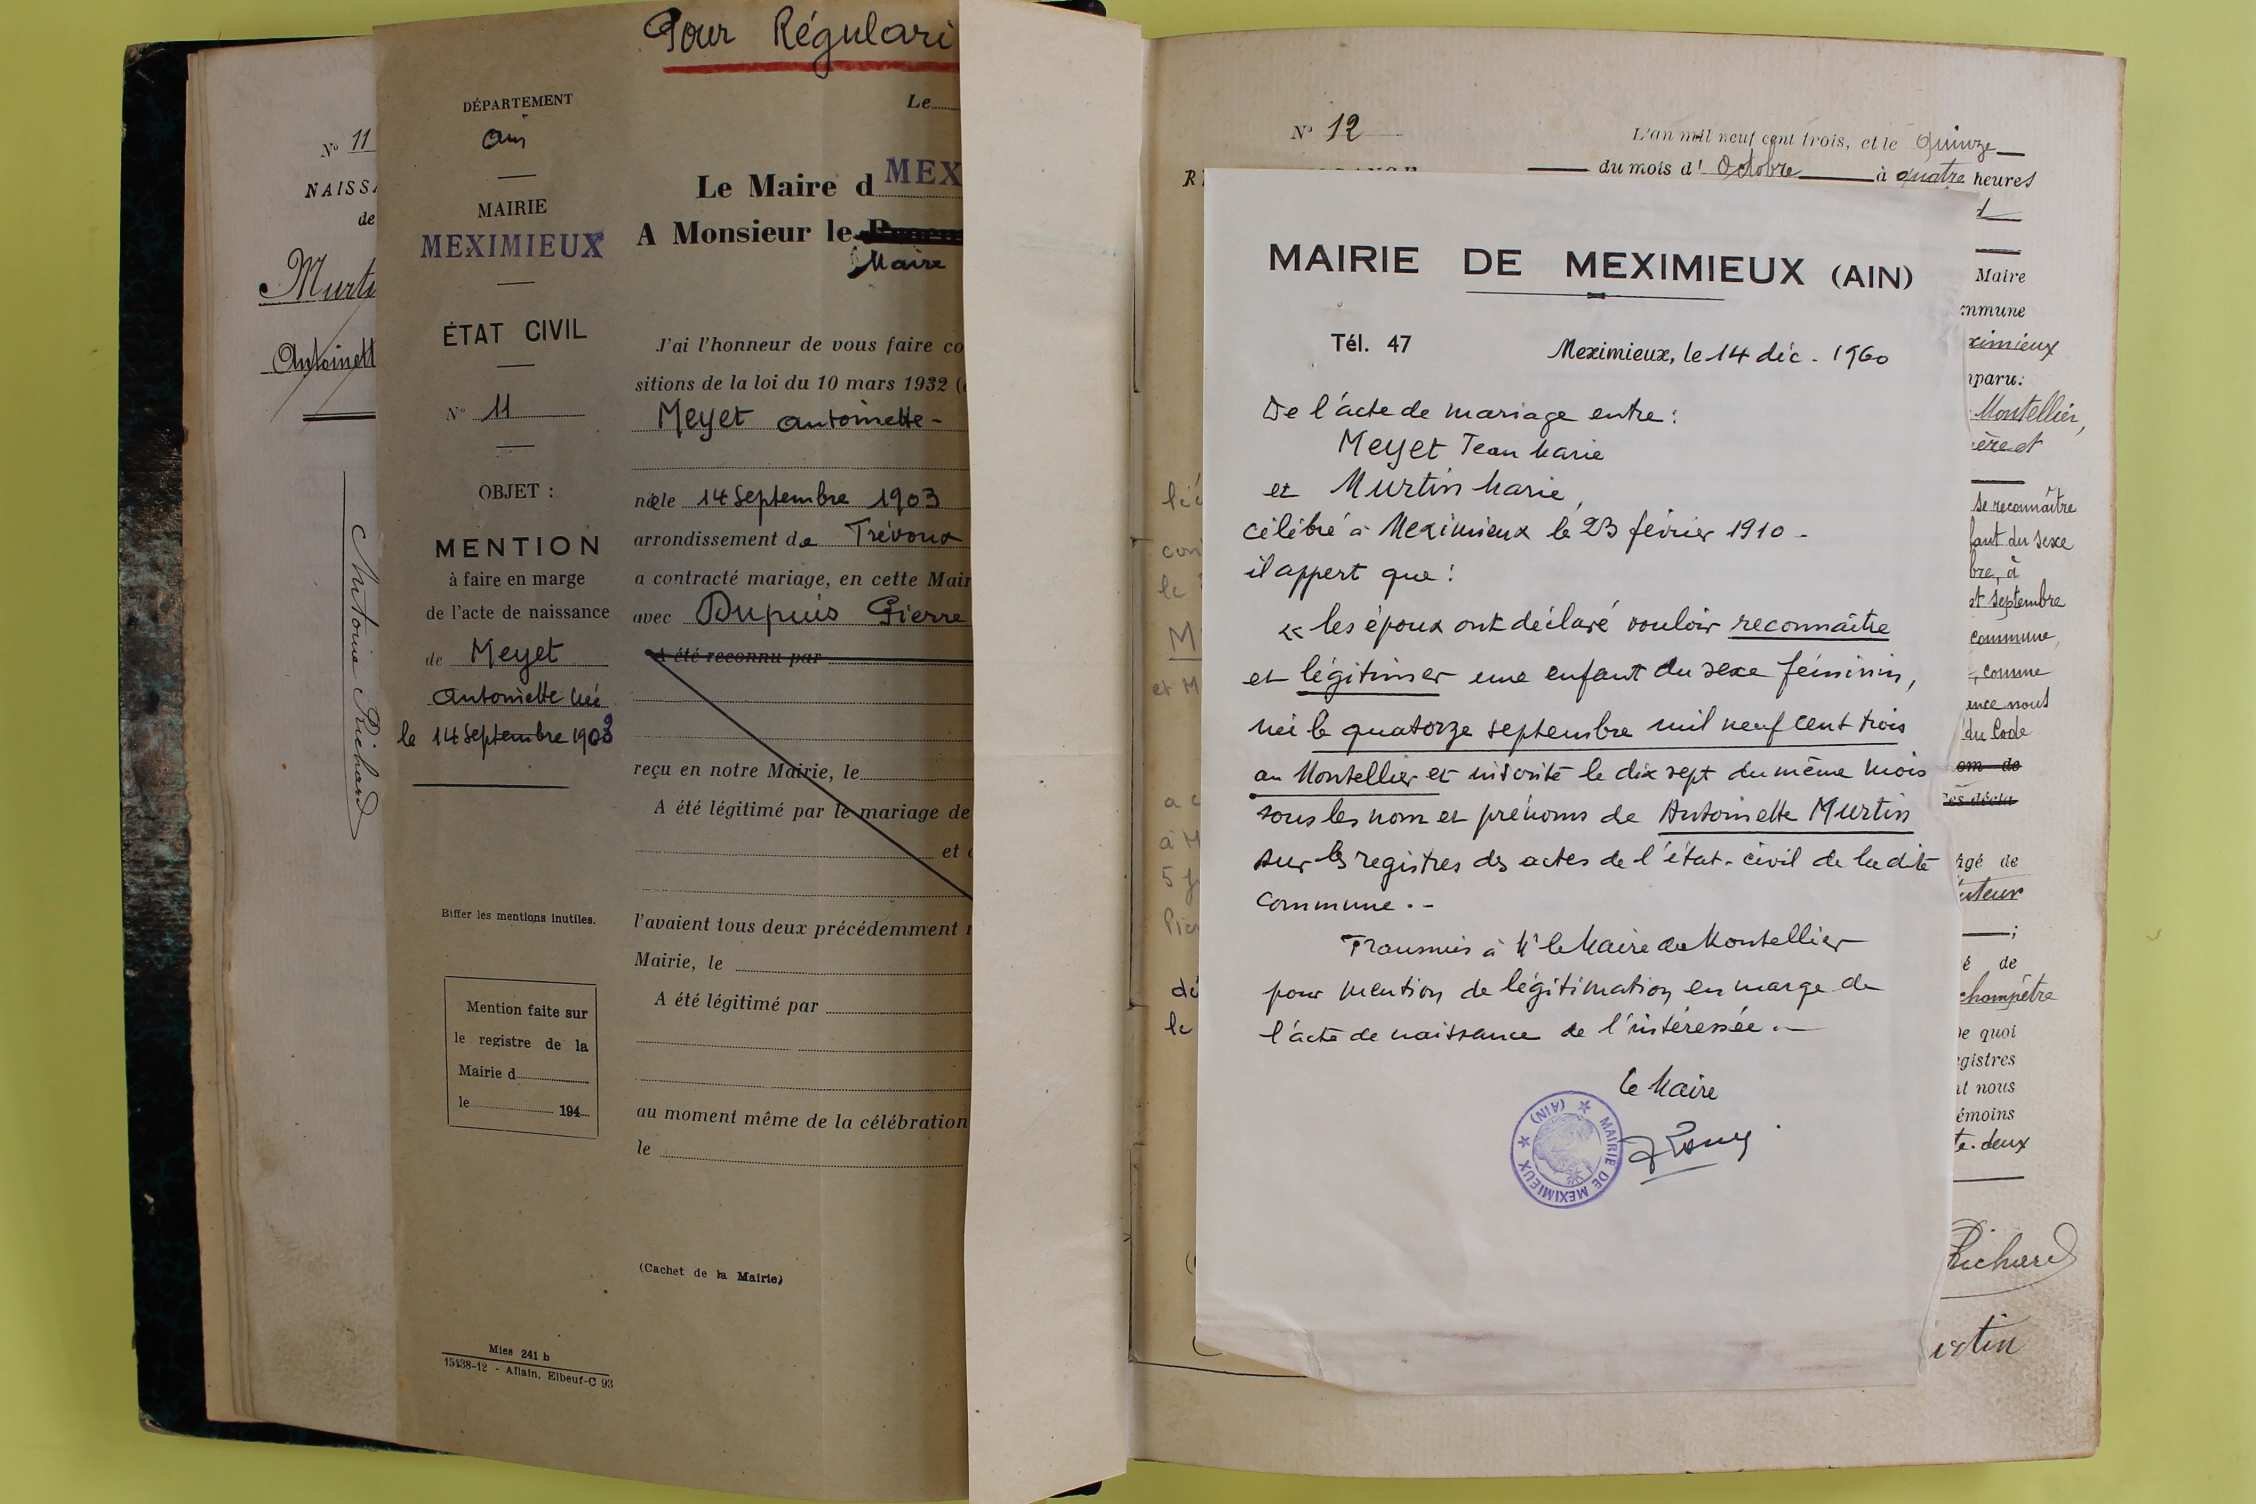 N° 11
NAISS
de
Murti
Antoinett
Antoine Richard
Pour Régulari
DÉPARTEMENT
Ain
MAIRIE
MEXIMIEUX
ÉTAT CIVIL
N° 11
OBJET :
MENTION
à faire en marge
de l'acte de naissance
de Meyet
Antoinette née
le 14 septembre 1903
Biffer les mentions inutiles.
Mention faite sur
le registre de la
Mairie d
le 194
Mies 241 b
15438-12 - Allain, Elbeuf-C 93
Le
Le Maire d MEX
A Monsieur le
Maire
J'ai l'honneur de vous faire co
sitions de la loi du 10 mars 1932 (
Meyet Antoinette -
née le 14 Septembre 1903
arrondissement de Trévoux
a contracté mariage, en cette Mair
avec Dupuis Pierre
A été reconnu par
reçu en notre Mairie, le
A été légitimé par le mariage de
et
l'avaient tous deux précédemment
Mairie, le
A été légitimé par
au moment même de la célébration
le
(Cachet de la Mairie)
N° 12
L'an mil neuf cent trois, et le quinze
du mois d' Octobre à quatre heures
MAIRIE DE MEXIMIEUX (AIN)
Tél. 47
Meximieux, le 14 déc. 1960
De l'acte de mariage entre :
Meyet Jean Marie
et Murtin Marie,
célébré à Meximieux le 23 février 1910 -
il appert que :
« les époux ont déclaré vouloir reconnaître
et légitimer une enfant du sexe féminin,
née le quatorze septembre mil neuf cent trois
au Montellier et inscrite le dix sept du même mois
sous les nom et prénoms de Antoinette Murtin
sur les registres des actes de l'état-civil de la dite
commune. -
Transmis à Mr le Maire du Montellier
pour mention de légitimation en marge de
l'acte de naissance de l'intéressée. -
Le Maire
MAIRIE DE MEXIMIEUX (AIN)
Maire
mmune
ximieux
mparu:
Montellier,
ère et
se reconnaître
fant du sexe
bre, à
et septembre
commune,
comme
ence nous
du Code
om de
rgé de
é de
champêtre
De quoi
egistres
nt nous
émoins
te-deux
Richard
rtin